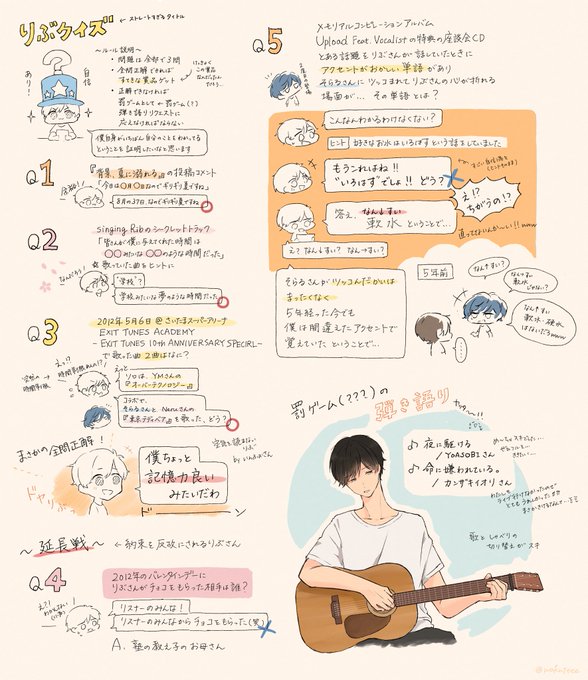 りぶクイズ
← ストレートすぎるタイトル
～ルール説明～
・問題は全部で3問
・全問正解できれば
すてきな賞品ゲット
・正解できなければ
罰ゲームとして
弾き語りリクエストに
応えなければならない
自信
あり!
僕自身がいちばん自分のことをわかってる
ということを証明したいなと思います
Q1
『背景、夏に溺れる』の投稿コメント
「今日は〇月〇日なのでギリギリ夏ですね」
余裕!
8月37日、なのでギリギリ夏ですね
Q2
singing Ribのシークレットトラック
「皆さんが僕に与えてくれた時間は
〇〇みたいな〇〇のような時間だった」
☆歌っていた曲をヒントに
なんだろう!
"学校"?
学校みたいな夢のような時間だった
Q3
2012年5月6日@さいたまスーパーアリーナ
EXIT TUNES ACADEMY
- EXIT TUNES 10th ANNIVERSARY SPECIAL -
で歌った曲2曲はなに?
えっと
ソロは、YMさんの
『オーバーテクノロジー』
コラボで、
そらるさんと、Neruさんの
『東京テディベア』を歌った、どう?
まさかの全問正解!
僕ちょっと
記憶力良い
みたいだわ
ドヤりぶ
ドーーーン
～延長戦～
← 約束を反故にされるりぶさん
Q4
2012年のバレンタインデーに
りぶさんがチョコをもらった相手は誰?
リスナーのみんな!
リスナーのみんなからチョコをもらった(笑)
A. 塾の教え子のお母さん
Q5
メモリアルコンピレーションアルバム
Upload Feat. Vocalistの特典の座談会CD
とある話題をりぶさんが話していたときに
アクセントがおかしい単語があり
そらるさんにツッコまれてりぶさんの心が折れる
場面が… その単語とは?
こんなんわかるわけなくない?
ヒント 好きなお水はいろはすという話をしていました
もうこれはね!!
"いろはす"でしょ!! どう?
え!?
ちがうの!?
答え. なんすい
軟水 ということで…
え? なんすい? なんすい?
そらるさんがツッコんだかいは
まったくなく
5年経った今でも
僕は間違えたアクセントで
覚えていたということで…
5年前
なんすい?
なんすい
軟水
じゃない?
なんすい
軟水・硬水
はないだろwww
罰ゲーム(???)の
弾き語り
♪夜に駆ける
/ YOASOBIさん
♪命に嫌われている。
/ カンザキイオリさん
歌としゃべりの
切り替えがスキ